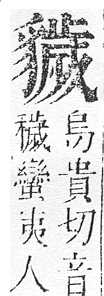 烏貴切音
穢蠻夷人